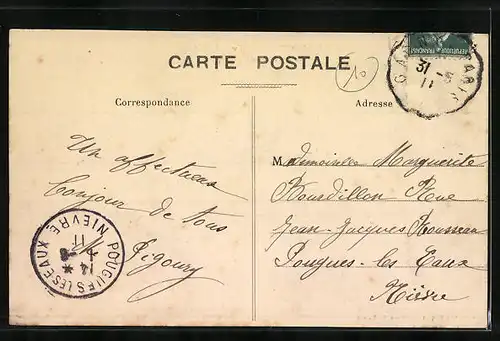 CARTE POSTALE
10
Correspondance
Adresse
REPUBLIQUE FRANÇAISE
PARIS
31 -5
11
Un affectueux
bonjour de tous
Pigoury
POUGUES LES EAUX NIÈVRE
14
11
Mademoiselle Marguerite
Bourdillon Rue
Jean-Jacques Rousseau
Pougues-les Eaux
Nièvre